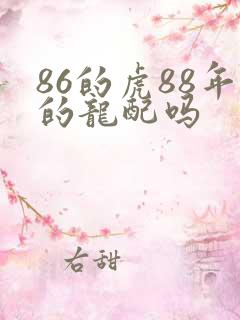 86的虎88年
的龍配吗
右甜